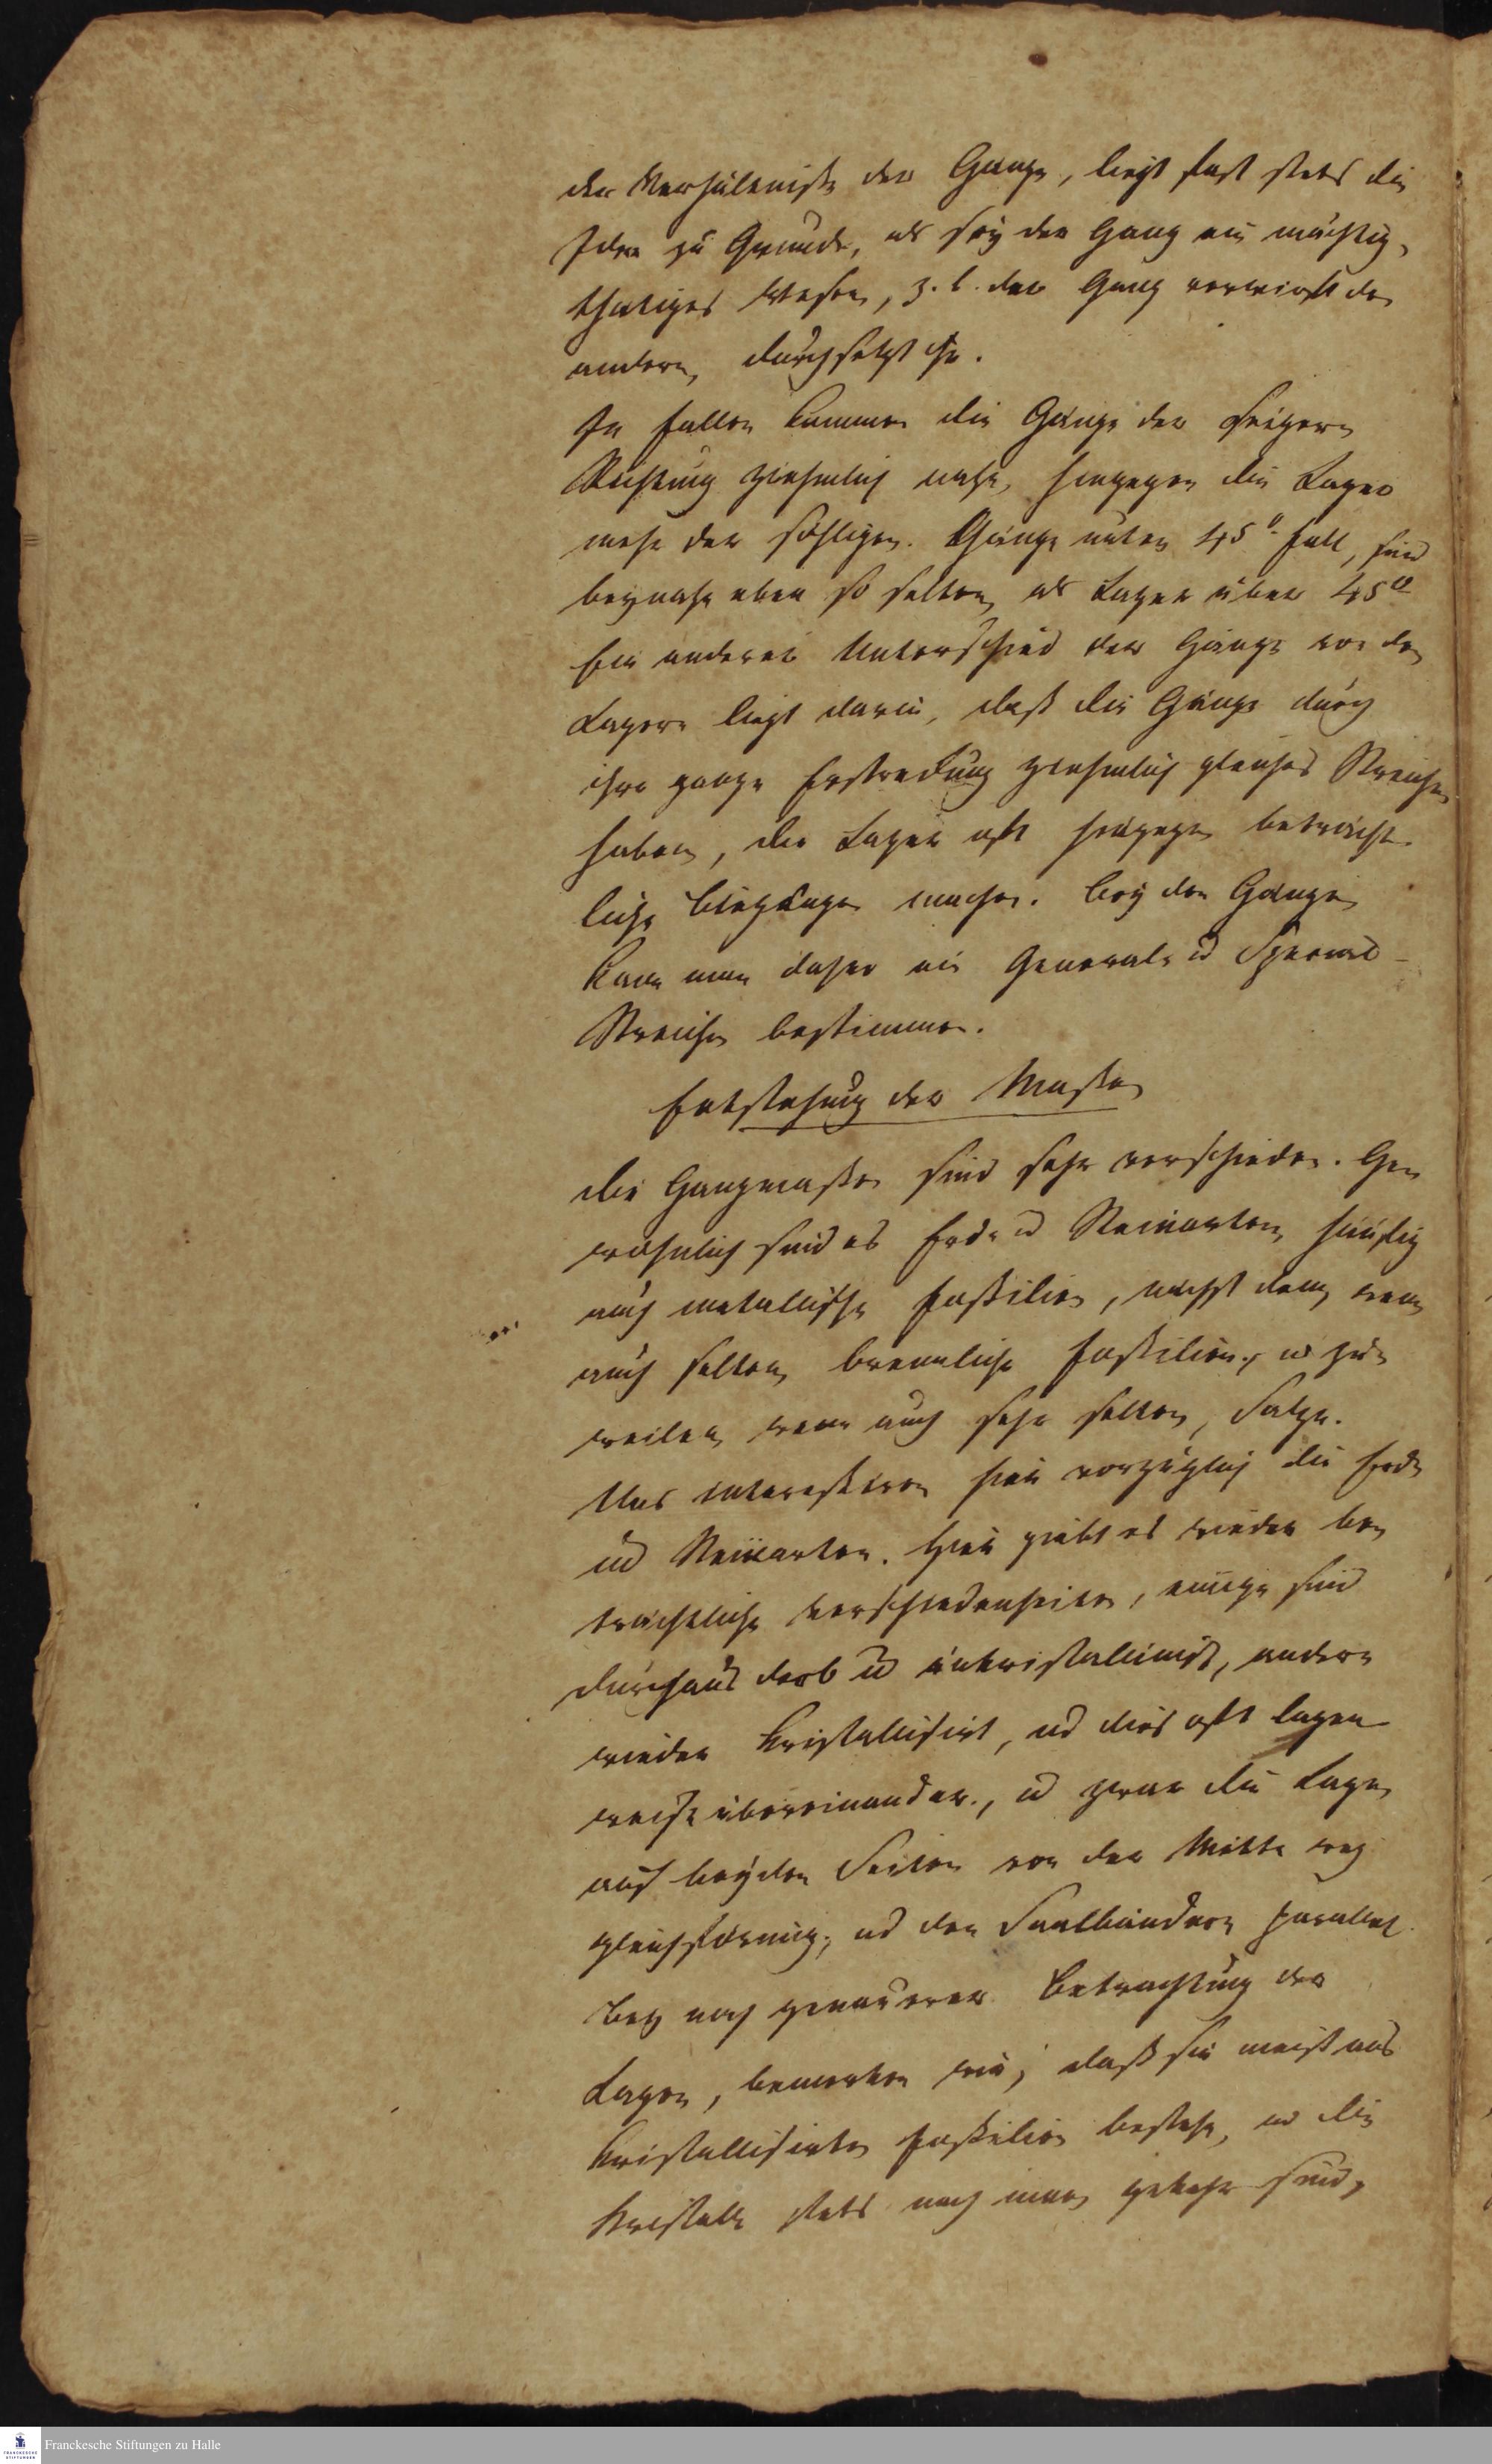 der Verhältniße der Gänge, liegt fast stets die
Idee zu Grunde, als sey der Gang ein mächtig,
thätiges Wesen, z. b. der Gang verwirft den
andern, durchsetzt ihn.
Im Fallen kommen die Gänge der seigern
Richtung ziehmlich nahe, hingegen die Lager
mehr der söhligen. Gänge unter 45° Fall, sind
beynahe eben so selten, als Lager über 45°
Ein anderer Unterschied der Gänge von den
Lagern liegt darin, daß die Gänge durch
ihre ganze Erstreckung ziehmlich gleiches Streichen
haben, die Lager oft hingegen beträcht-
liche biegungen machen. bey den Gängen
kann man daher ein General u Special-
Streichen bestimmen.
Entstehung der Maßen
die Gangmaßen sind sehr verschieden. Ge-
wöhnlich sind es Erd u Steinarten, häufig
auch metallische Foßilien, nächst dem, wenn
auch selten, brennliche Foßilien, u zu-
weilen, wenn auch sehr selten, Salze.
Uns interessiren hier vorzüglich die Erd-
und Steinarten. Hier giebt es wieder be-
trächtliche Verschiedenheiten, einige sind
durchaus derb u unkristallinisch, andere
wieder kristallisirt, und dies oft lagen-
weise übereinander, u zwar die Lagen
auf beyden Seiten von der Mitte weg
gleichförmig, und den Saalbändern parallel.
bey noch genauerer Betrachtung der
Lagen, bemerken wir, daß sie meist aus
kristallisirten Foßilien bestehn, u die
Kristalle stets nach innen gekehrt sind,
Franckesche Stiftungen zu Halle